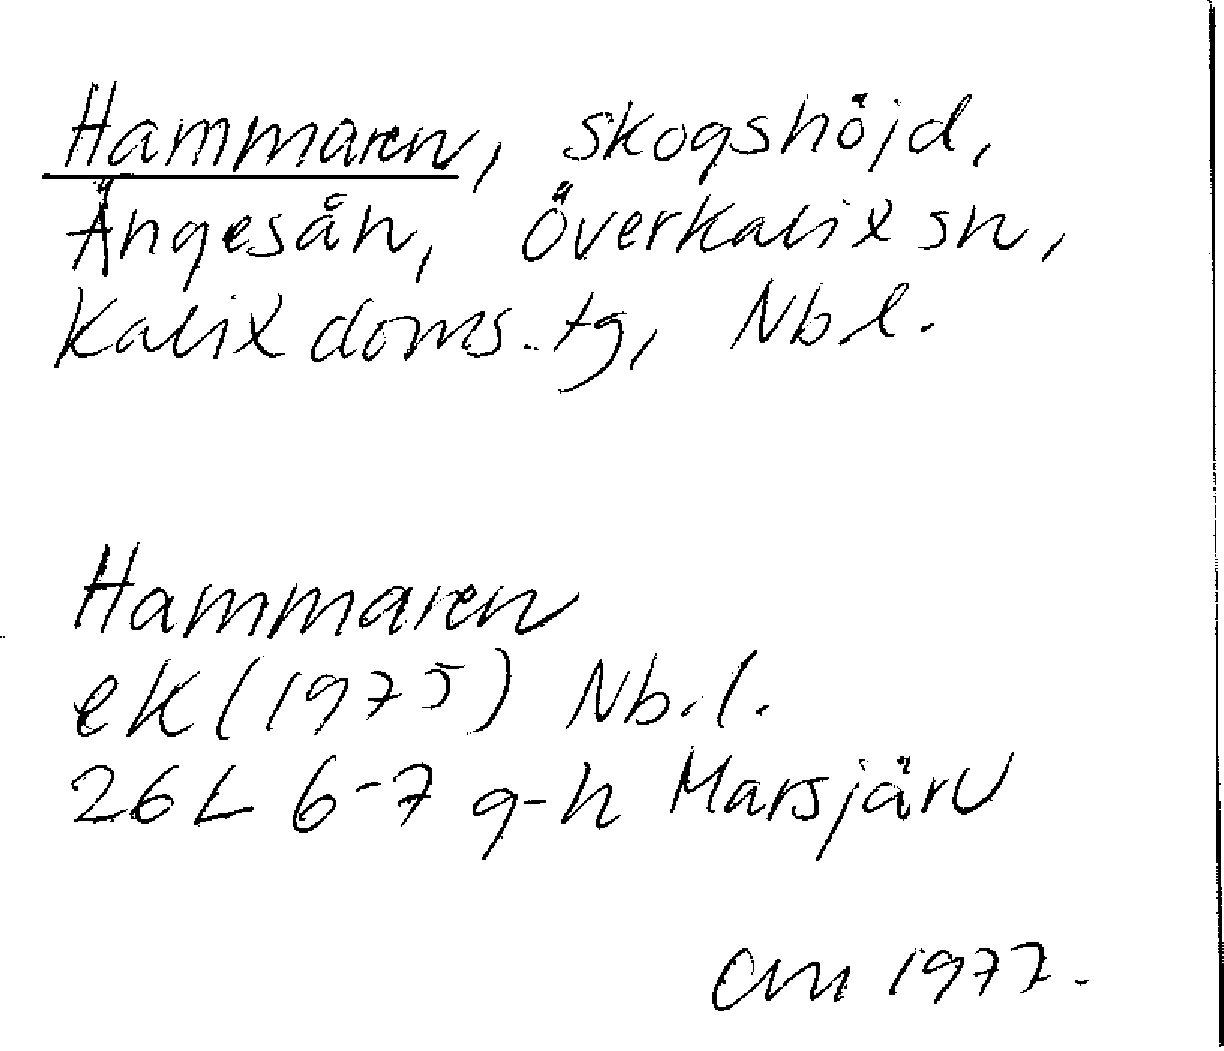 Hammaren, skogshöjd,
Ängesån, Överkalix sn,
Kalix doms. tg, Nb l.
Hammaren
ek (1975) Nb. l.
26 L 6-7 g-h Marsjärv
1977.